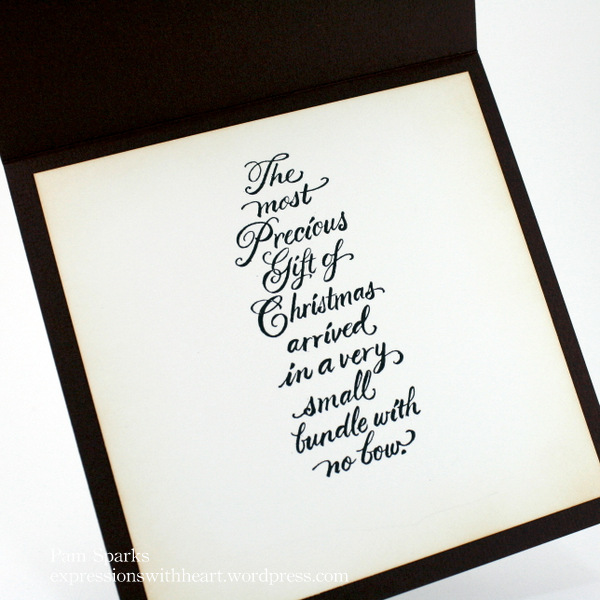 The
most
Precious
Gift of
Christmas
arrived
in a very
small
bundle with
no bow.
Pam Sparks
expressionswithheart.wordpress.com